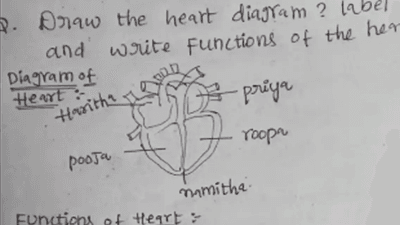 Q. Draw the heart diagram? label
and write Functions of the hea
Diagram of
Heart :-
Haritha
priya
pooja
roopa
namitha.
Functions of Heart :-